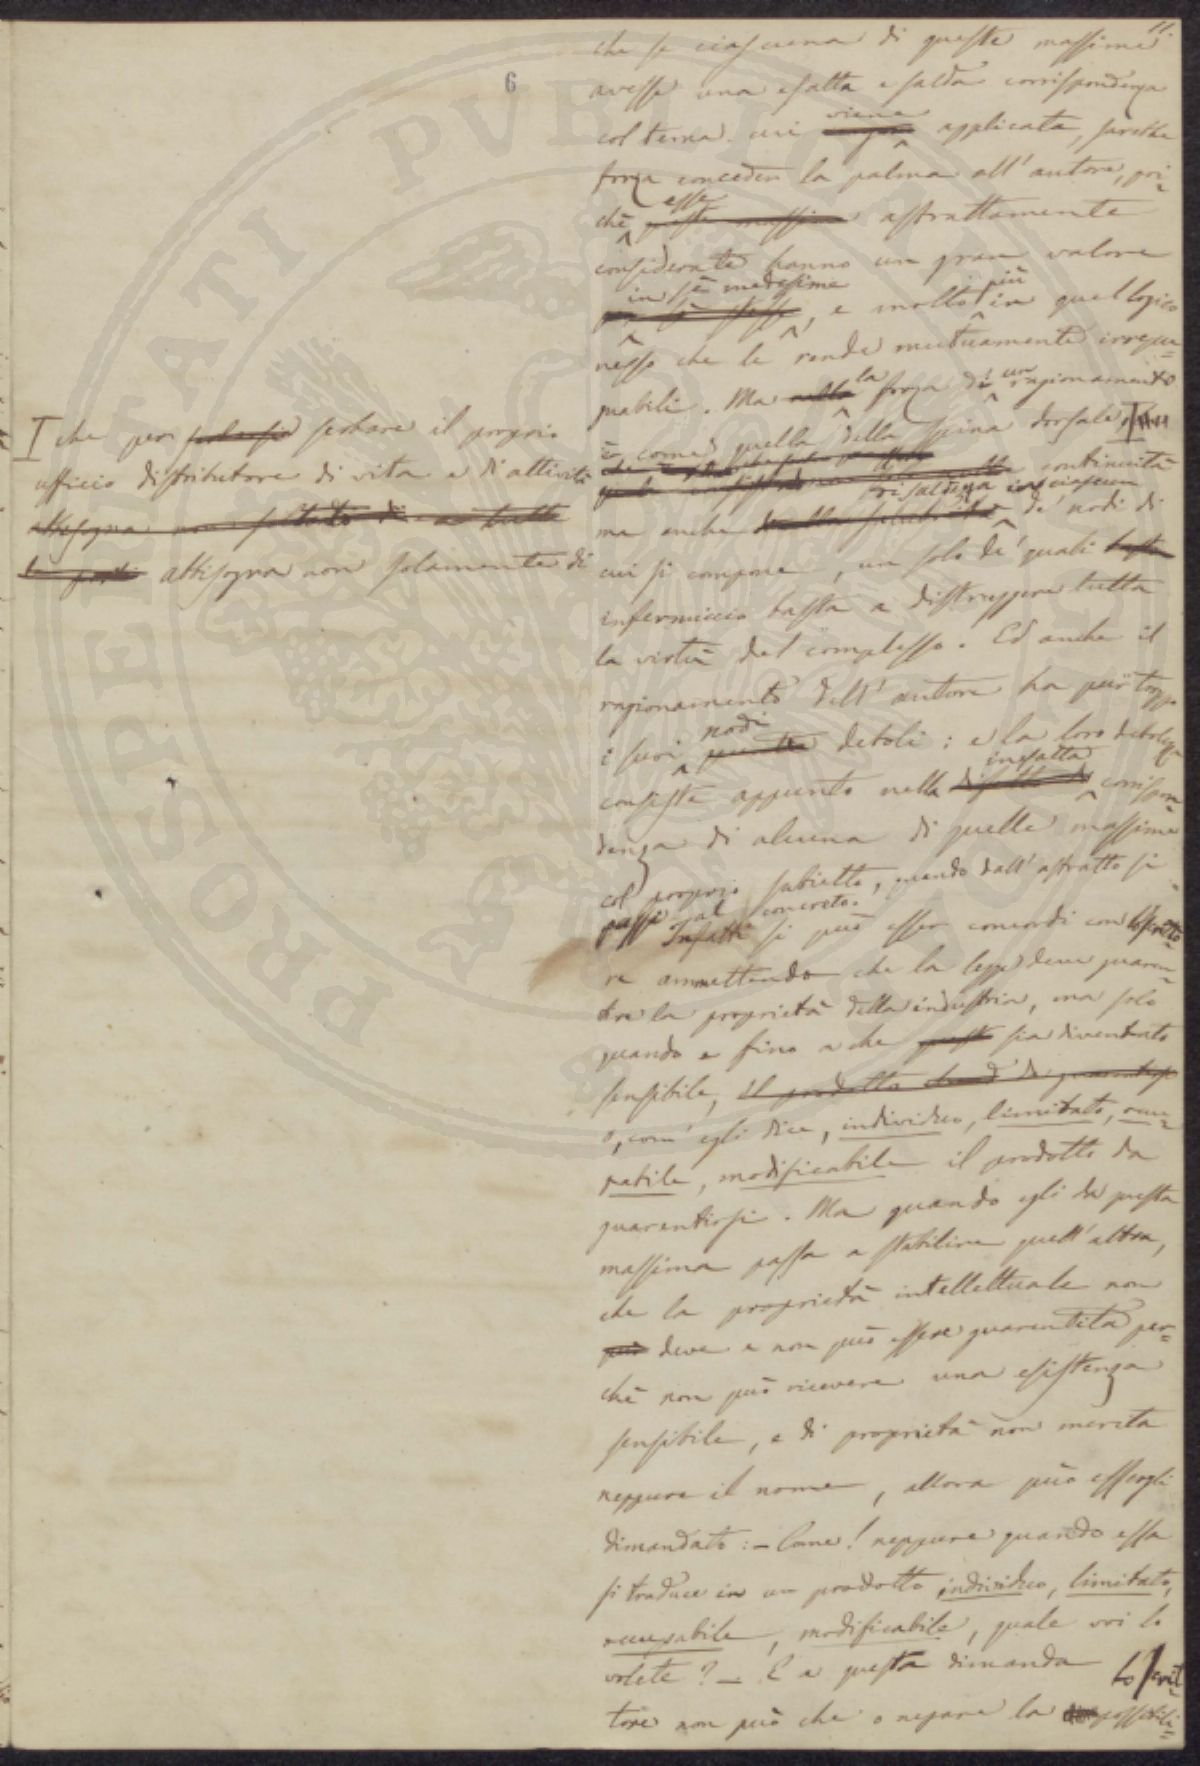 11.
6
che se ciascuna di queste massime
avesse una esatta e salda corrispondenza
col tema cui viene applicata, sarebbe
forza conceder la palma all'autore, poi=
chè esse astrattamente
considerate hanno un gran valore
in sè medesime, e molto più in quel logico
nesso che le rende mutuamente irrepu=
gnabili. Ma la forza di un ragionamento
è come quella della spina dorsale
continuità
ma anche saldezza in ciascun de' nodi di
cui si compone, un solo de' quali
infermiccio basta a distruggere tutta
la virtù del complesso. Ed anche il
ragionamento dell'autore ha pur troppo
i suoi nodi deboli: e la loro debolezza
consiste appunto nella inesatta corrispon=
denza di alcuna di quelle massime
col proprio subietto, quando dall'astratto si
passi al concreto.
Infatti si può esser concordi con lo scritto=
re ammettendo che la legge deve guaren=
tire la proprietà della industria, ma solo
quando e fino a che sia diventato
sensibile, il prodotto
o, com' egli dice, individuo, limitato, occu=
pabile, modificabile il prodotto da
guarentirsi. Ma quando egli da questa
massima passa a stabilire quell'altra,
che la proprietà intellettuale non
può deve e non può essere guarentita per=
chè non può ricevere una esistenza
sensibile, e di proprietà non merita
neppure il nome, allora può essergli
dimandato: – Come! neppure quando essa
si traduce in un prodotto individuo, limitato,
occupabile, modificabile, quale voi lo
volete? – E a questa dimanda lo scrit=
tore non può che o negare la possibili=
I che per serbare il proprio
ufficio distributore di vita e di attività
abbisogna non soltanto di tutte
le parti abbisogna non solamente di
PROSPERITATI PVBLICAE